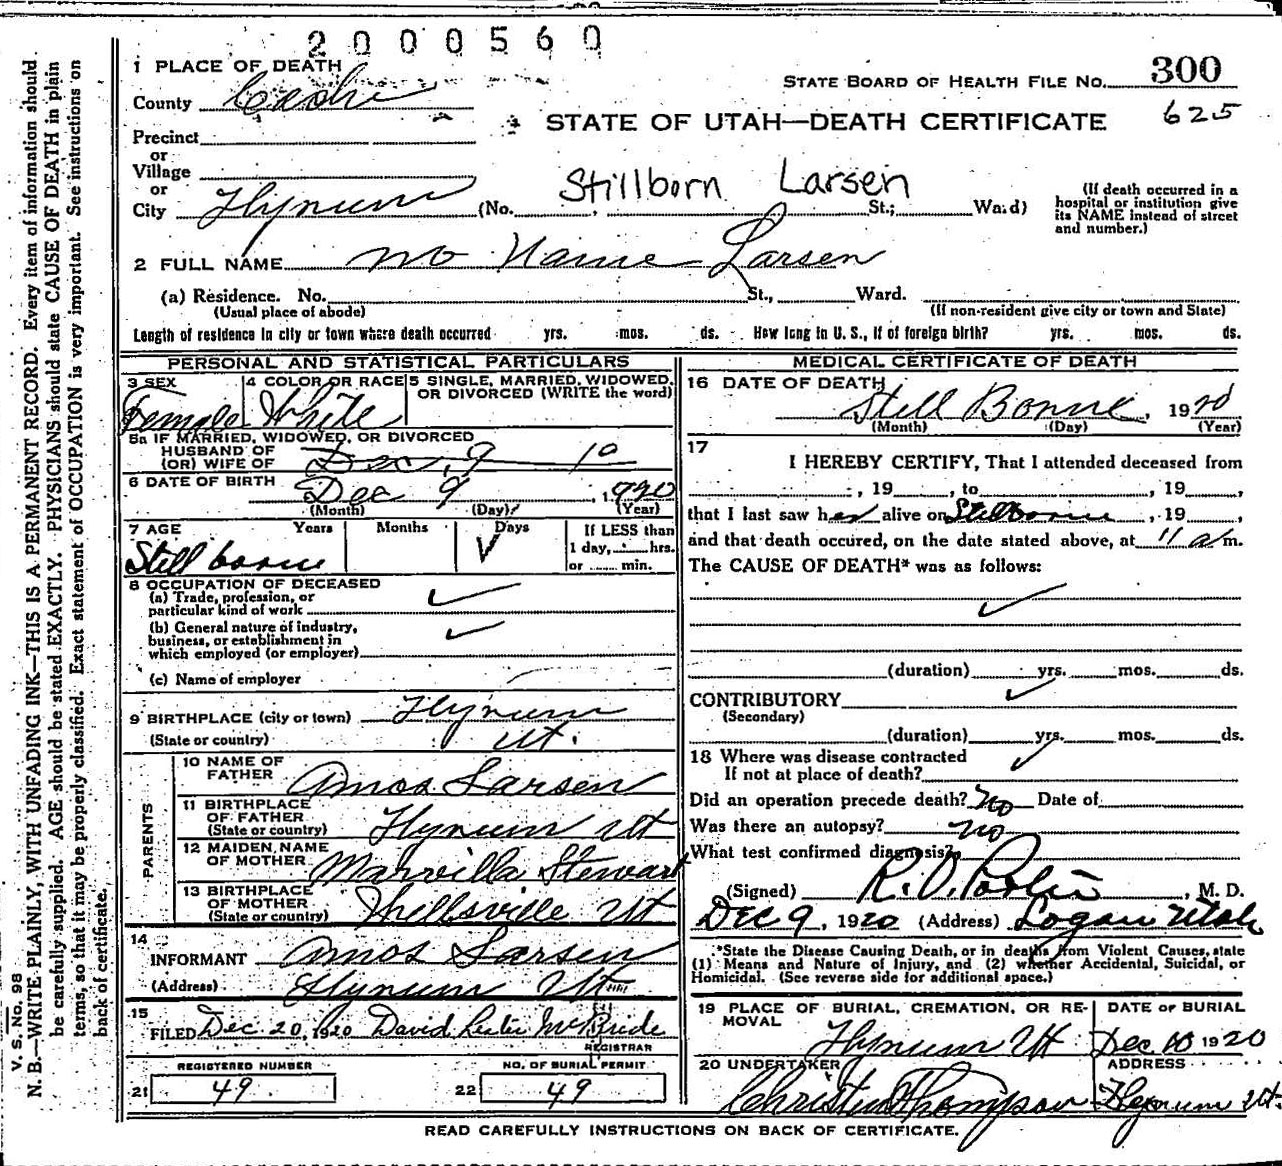 2000560
1 PLACE OF DEATH
STATE BOARD OF HEALTH FILE NO. 300
County Cache
625
STATE OF UTAH—DEATH CERTIFICATE
Precinct
or
Village
or
Stillborn Larsen
City Hyrum (No. , St.; Ward)
(If death occurred in a
hospital or institution give
its NAME instead of street
and number.)
2 FULL NAME no Name Larsen
(a) Residence. No. St., Ward.
(Usual place of abode) (If non-resident give city or town and State)
Length of residence in city or town where death occurred yrs. mos. ds. How long in U. S., if of foreign birth? yrs. mos. ds.
PERSONAL AND STATISTICAL PARTICULARS
3 SEX 4 COLOR OR RACE 5 SINGLE, MARRIED, WIDOWED,
OR DIVORCED (WRITE the word)
Female White
5a IF MARRIED, WIDOWED, OR DIVORCED
HUSBAND OF
(OR) WIFE OF Dec, 9
6 DATE OF BIRTH Dec 9, 1920
(Month) (Day) (Year)
7 AGE Years Months Days If LESS than
1 day, hrs.
or min.
Still borne
8 OCCUPATION OF DECEASED
(a) Trade, profession, or
particular kind of work
(b) General nature of industry,
business, or establishment in
which employed (or employer)
(c) Name of employer
9 BIRTHPLACE (city or town) Hyrum
(State or country) Ut.
PARENTS
10 NAME OF
FATHER Amos Larsen
11 BIRTHPLACE
OF FATHER
(State or country) Hyrum Ut
12 MAIDEN NAME
OF MOTHER Marvilla Stewart
13 BIRTHPLACE
OF MOTHER
(State or country) Wellsville Ut
14
INFORMANT Amos Larsen
(Address) Hyrum Ut
15
FILED Dec. 20, 1920 David Leslie McBride
REGISTRAR
REGISTERED NUMBER NO. OF BURIAL PERMIT
21 49 22 49
MEDICAL CERTIFICATE OF DEATH
16 DATE OF DEATH
Still Borne, 1920
(Month) (Day) (Year)
17
I HEREBY CERTIFY, That I attended deceased from
, 19 , to , 19 ,
that I last saw her alive on Stillborne, 19 ,
and that death occured, on the date stated above, at 11 a m.
The CAUSE OF DEATH* was as follows:
(duration) yrs. mos. ds.
CONTRIBUTORY
(Secondary)
(duration) yrs. mos. ds.
18 Where was disease contracted
If not at place of death?
Did an operation precede death? no Date of
Was there an autopsy? no
What test confirmed diagnosis?
(Signed) R. O. , M. D.
Dec 9, 1920 (Address) Logan Utah
*State the Disease Causing Death, or in deaths from Violent Causes, state
(1) Means and Nature of Injury, and (2) whether Accidental, Suicidal, or
Homicidal. (See reverse side for additional space.)
19 PLACE OF BURIAL, CREMATION, OR RE-
MOVAL DATE OF BURIAL
Hyrum Ut Dec 10 1920
20 UNDERTAKER ADDRESS
Thompson Hyrum Ut.
READ CAREFULLY INSTRUCTIONS ON BACK OF CERTIFICATE.
V. S. No. 98
N. B.—WRITE PLAINLY, WITH UNFADING INK—THIS IS A PERMANENT RECORD. Every item of information should
be carefully supplied. AGE should be stated EXACTLY. PHYSICIANS should state CAUSE OF DEATH in plain
terms, so that it may be properly classified. Exact statement of OCCUPATION is very important. See instructions on
back of certificate.